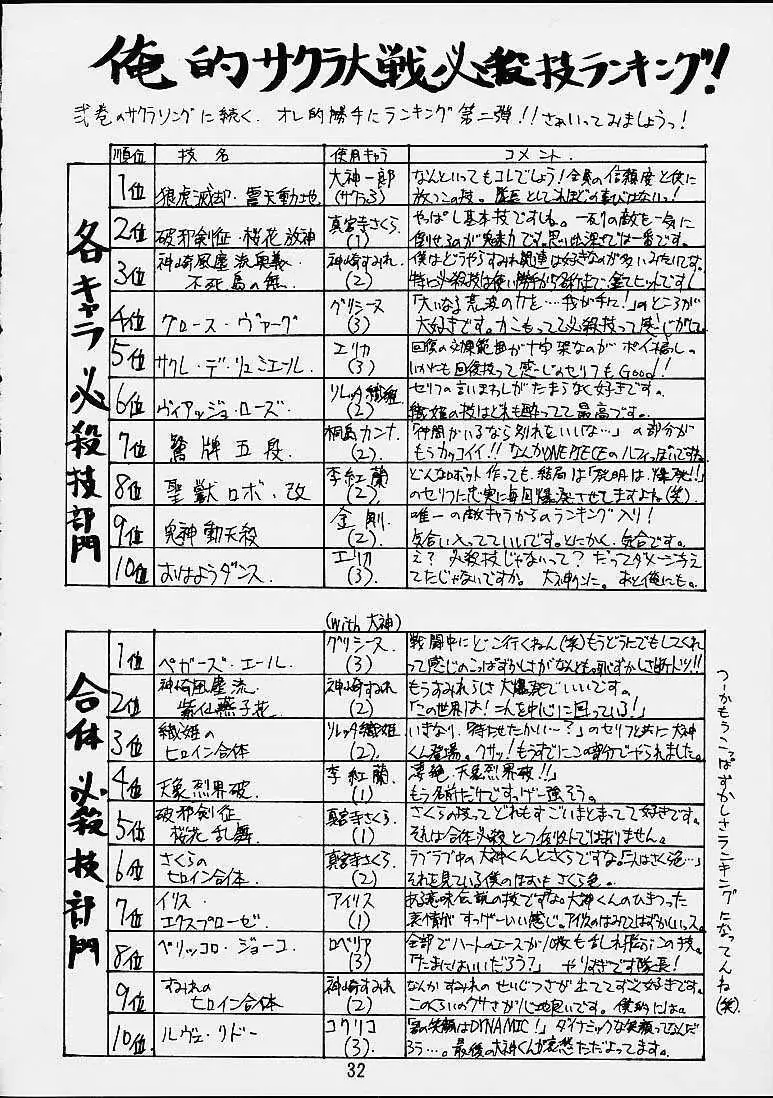 俺的サクラ大戦必殺技ランキング!
弐巻のサクラソングに続く、オレ的勝手にランキング第二弾!!さぁいってみましょうっ!
各キャラ必殺技部門
順位 技名 使用キャラ コメント.
1位 狼虎滅却・震天動地 大神一郎 なんといってもコレでしょう!全員の信頼度と供に
放つこの技。隊長としてこれほどの喜びはないっ!
2位 破邪剣征・桜花放神 真宮寺さくら (1) やっぱし基本技ですしね。一列の敵も一気に
倒せるのが魅力です。思い出深さでは一番です。
3位 神崎風塵流奥義・不死鳥の舞 神崎すみれ (2) 僕はどうやらすみれ関連は好きなのが多いみたいです。
特に必殺技は使い勝手から名称まで全てヒットです!
4位 グロース・ヴァーグ グリシーヌ (3) 「大いなる荒波の力を…我が手に!」のところが
大好きです。
5位 サクレ・デ・リュミエール エリカ (3) 回復の効果範囲が十字架なのがポイント高しの
いかにも回復技って感じのセリフもGood!
6位 ヴィアッジョ・ローズ ソレッタ織姫 (2) セリフの言いまわしがたまらなく好きです。
織姫の技はどれも酔ってて最高です。
7位 鷲牌五段 桐島カンナ (2) 「仲間がいるなら別れをいいな…」の部分が
もうカッコイイ!!なんかONE PIECEのルフィっぽいですね
8位 聖獣ロボ・改 李紅蘭 (2) どんなロボット作っても、結局は「発明は、爆発!!」
のセリフに忠実に毎回爆発させてますよね(笑)
9位 鬼神動天殺 金剛 (2) 唯一の敵キャラからのランキング入り!
気合い入ってていいです。とにかく、気合です。
10位 おはようダンス エリカ (3). え?必殺技じゃないって?だってダメージ与え
てたじゃないですか。大神くんに。あと俺にも。
合体必殺技部門
(with 大神)
1位 ペガーズ・エール. グリシーヌ (3) 戦闘中にどこ行くねん(笑)もうどうにでもしてくれ
って感じのこっぱずかしさがなんとも。恥ずかしさ断トツ!!
2位 神崎風塵流 紫仙燕子花 神崎すみれ (2) もうすみれらしさ大爆発でいいです。
「この世界は!二人を中心に回っている!」
3位 織姫のヒロイン合体 ソレッタ織姫 (2). いきなり、「待たせたかい〜?」のセリフと共に大神
くん登場。クサッ!もうすでにこの部分でやられました。
4位 天象烈界破. 李紅蘭. (1) 「凄絶、天象烈界破!!」
もう名前だけですっげー強そう。
5位 破邪剣征 桜花乱舞 真宮寺さくら (1) さくらの技ってどれもすごいまとまってて好きです。
それは合体必殺とて例外ではありません。
6位 さくらのヒロイン合体. 真宮寺さくら. (2) ラブラブ中の大神くんとさくらですな。「人はさくら色…」
それを見ている僕のほおもさくら色。
7位 イリス・エクスプローゼ. アイリス (1) ある意味伝説の技ですな。大神くんのひきつった
表情がすっげーいい感じ。アイリスのはみててはずかしいっス。
8位 ペリッコロ・ジョーコ. ロベリア (3) 全部でハートのエースが10枚も
「たまにはいいだろう?」 やりすぎです隊長!
9位 すみれのヒロイン合体 神崎すみれ (2) なんかすみれのせいじつさが出ててすっごく好きです。
このくらいのクサさが心地良いです。僕的には。
10位 ルヴェ・リドー コクリコ (3). 「君の笑顔はDYNAMIC!」ダイナミックな笑顔ってなんだ
ろう…。最後の大神くんが哀愁ただよってます。
つーかもうこっぱずかしさランキングになってんね(笑)
32